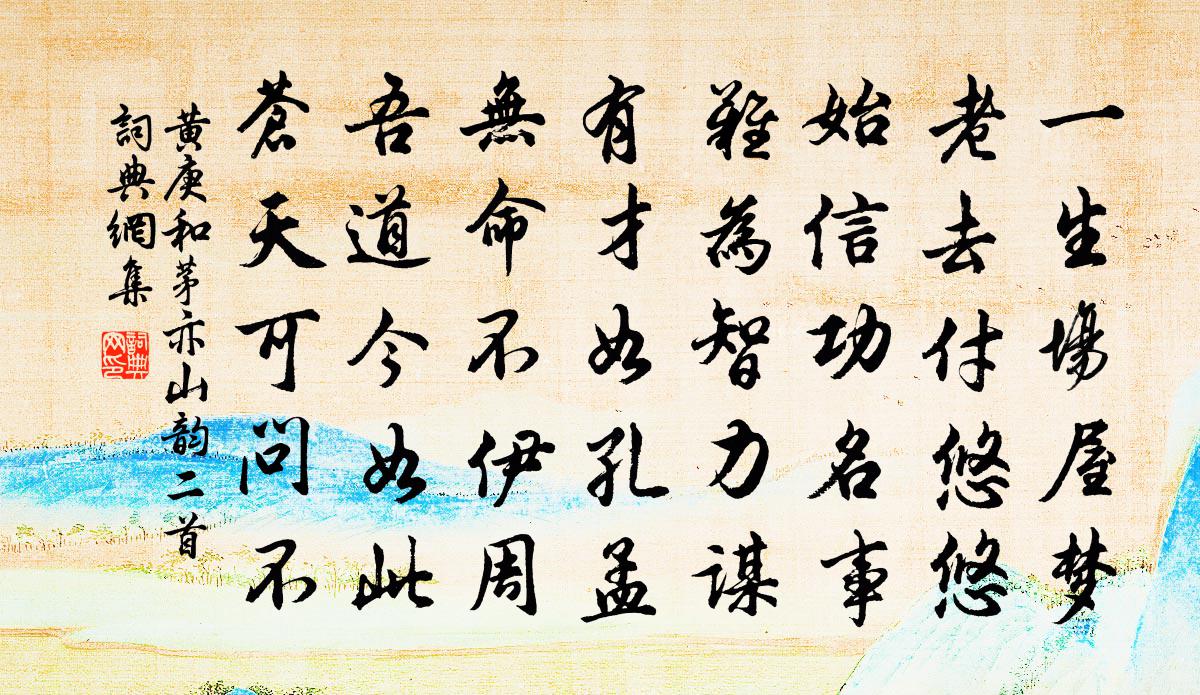 一生場屋梦
老去付悠悠
始信功名事
難為智力謀
有才如孔孟
無命不伊周
吾道今如此
蒼天可問不
黄庚和茅亦山韵二首
詞典網集
詞典
网印